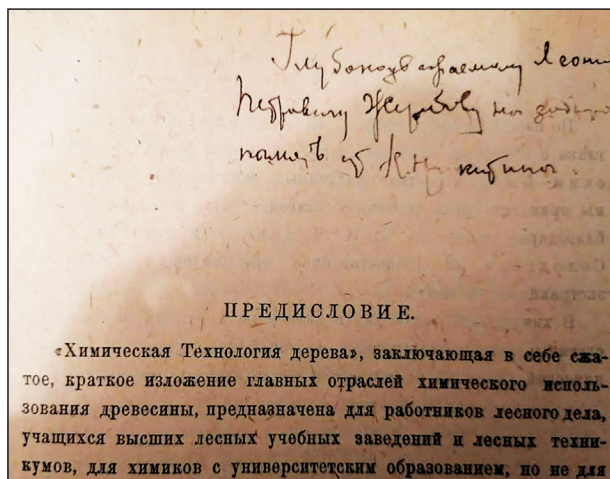 Глубокоуважаемому Леони
Петровичу Жеребову на добрую
память от Н. Никитина.
ПРЕДИСЛОВИЕ.
«Химическая Технология дерева», заключающая в себе сжа-
тое, краткое изложение главных отраслей химического исполь-
зования древесины, предназначена для работников лесного дела,
учащихся высших лесных учебных заведений и лесных техни-
кумов, для химиков с университетским образованием, но не для